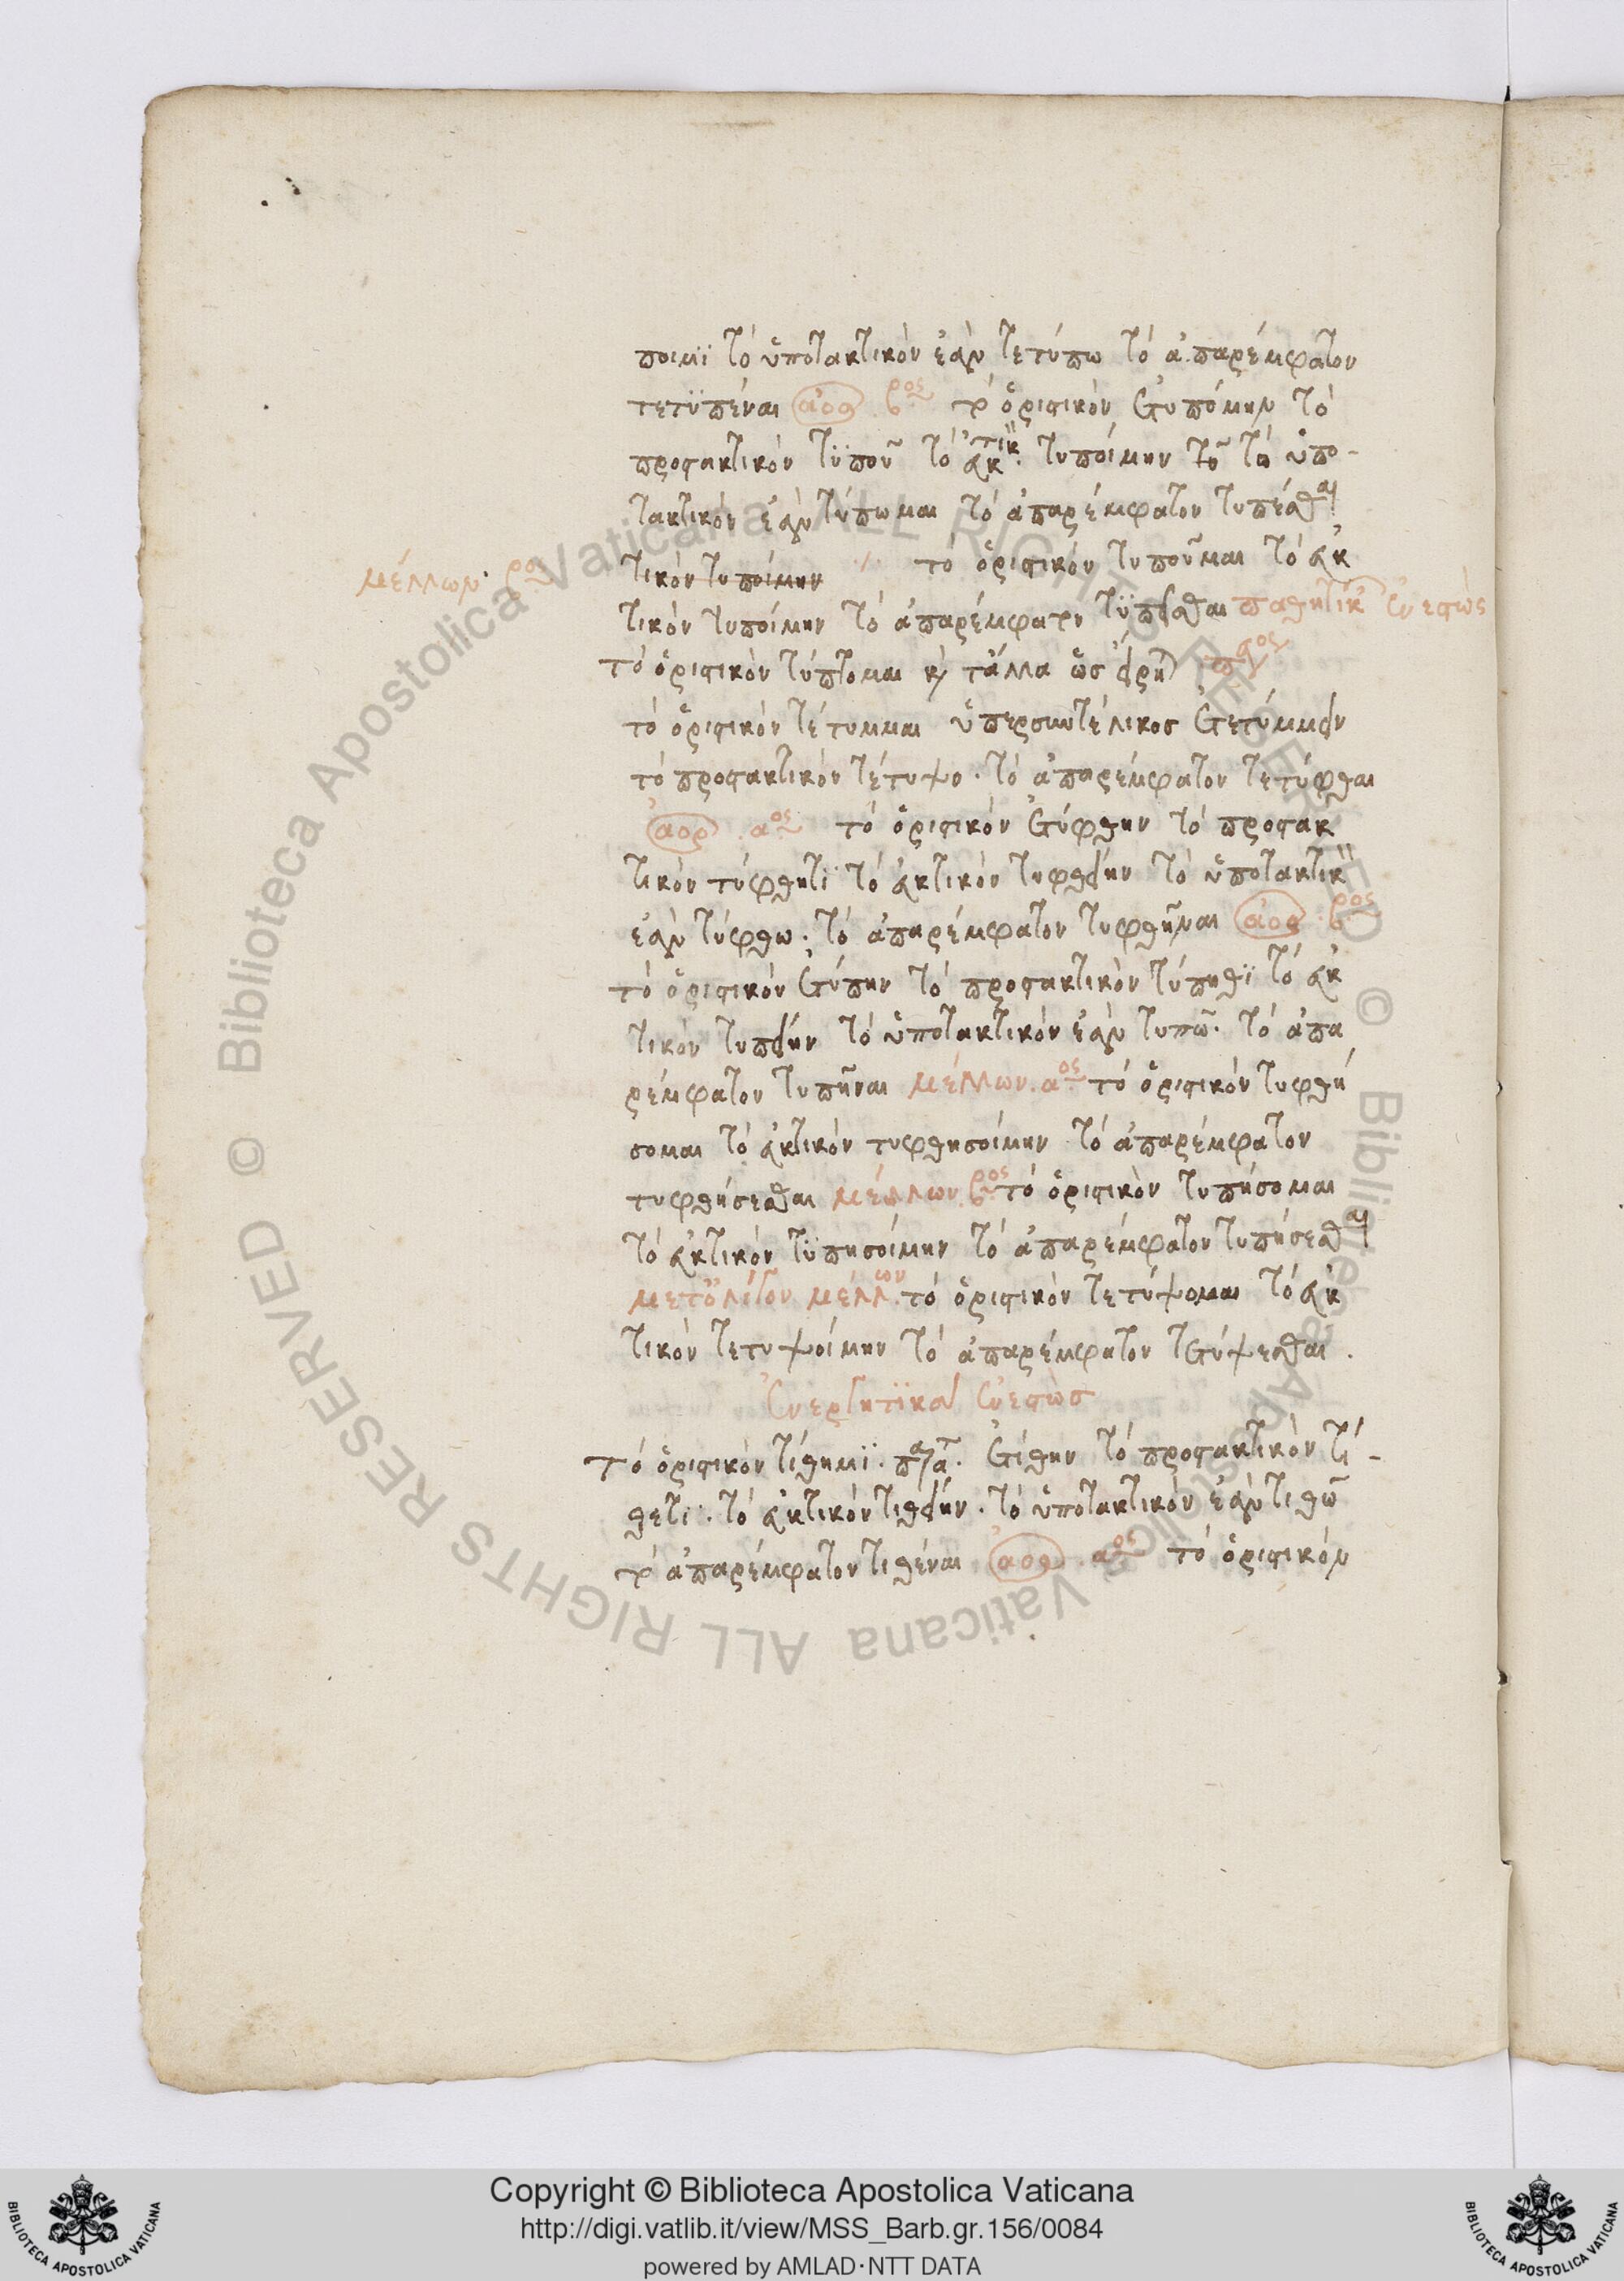 ποιμϊ τὸ ὑποτακτικὸν ἐὰν τετύπω τὸ ἀπαρέμφατον
τετϋπέναι ἀορ βος τὸ ὁριστικὸν ἐτυπόμην τὸ
προστακτικὸν τϋποῦ τὸ εὐκτικ τυποίμην τὸ ὑπο-
τακτικὸν ἐὰν τύπωμαι τὸ ἀπαρέμφατον τυπέσθαι
τικὸν τυποίμην τὸ ὁριστικὸν τυποῦμαι τὸ εὐκ
μέλλων βος
τικὸν τυποίμην τὸ ἀπαρέμφατον τϋπεῖσθαι παθητικ ἐνεστὼς
τὸ ὁριστικὸν τύπτομαι καὶ τἄλλα ὡσ εἴρη
τὸ ὁριστικὸν τέτυμμαι ὑπερσυντέλικοσ ἐτετύμμειν
τὸ προστακτικὸν τέτυψο. τὸ ἀπαρέμφατον τετύφθαι
ἀορ. αος τὸ ὁριστικὸν ἐτύφθην τὸ προστακ
τικὸν τύφθητϊ τὸ εὐκτικὸν τυφθείην τὸ ὑποτακτικ
ἐὰν τύφθω. τὸ ἀπαρέμφατον τυφθῆναι ἀορ βος
τὸ ὁριστικὸν ἐτύπην τὸ προστακτικὸν τύπηθϊ τὸ εὐκ
τικὸν τυπείην τὸ ὑποτακτικὸν ἐὰν τυπῶ. τὸ ἀπα
ρέμφατον τυπῆναι μέλλων. αος τὸ ὁριστικὸν τυφθή
σομαι τὸ εὐκτικὸν τυφθησοίμην τὸ ἀπαρέμφατον
τυφθήσεσθαι μέλλων. βος τὸ ὁριστικὸν τυπήσομαι
τὸ εὐκτικὸν τϋπησοίμην τὸ ἀπαρέμφατον τυπήσεσθαι
μετ ὀλίγον μέλλων τὸ ὁριστικὸν τετύψομαι τὸ εὐκ
τικὸν τετυψοίμην τὸ ἀπαρέμφατον τετύψεσθαι.
ἐνεργητϊκα ἐνεστὼσ
τὸ ὁριστικὸν τίθημϊ. παρατ. ἐτίθην τὸ προστακτικὸν τί-
θετϊ. τὸ εὐκτικὸν τιθείην. τὸ ὑποτακτικὸν ἐὰν τιθῶ
τὸ ἀπαρέμφατον τιθέναι ἀορ αος τὸ ὁριστικὸν
Copyright © Biblioteca Apostolica Vaticana
http://digi.vatlib.it/view/MSS_Barb.gr.156/0084
powered by AMLAD·NTT DATA
BIBLIOTECA APOSTOLICA VATICANA
BIBLIOTECA APOSTOLICA VATICANA
© Biblioteca Apostolica Vaticana ALL RIGHTS RESERVED © Biblioteca Apostolica Vaticana ALL RIGHTS RESERVED